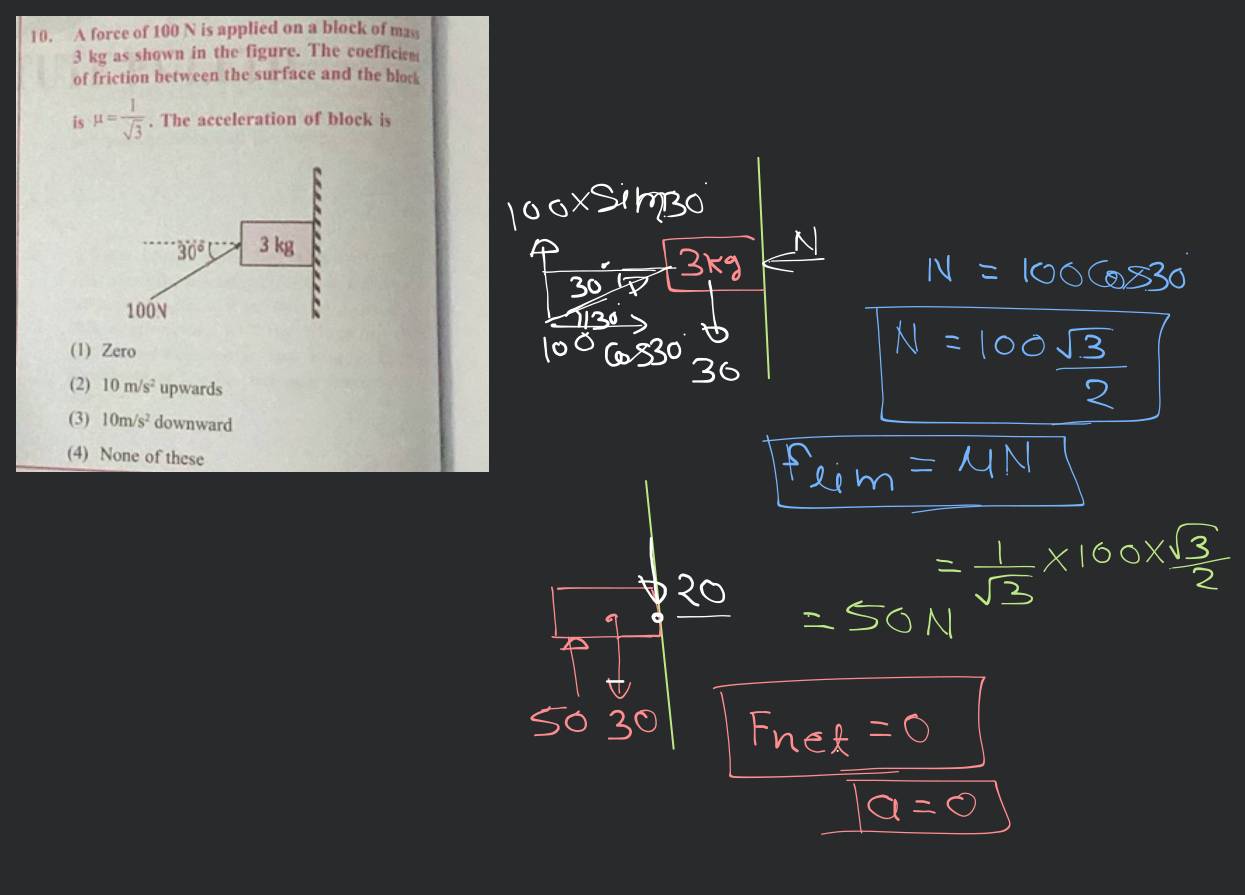 10. A force of 100 N is applied on a block of mass
3 kg as shown in the figure. The coefficient
of friction between the surface and the block
is μ = 1/√3 . The acceleration of block is
30°
3 kg
100N
(1) Zero
(2) 10 m/s² upwards
(3) 10m/s² downward
(4) None of these
100×Sin30°
30°
3kg
N
30°
100 Cos30°
30
N = 100Cos30°
N = 100 √3/2
flim = μN
= 1/√3 × 100 × √3/2
= 50N
20
50 30
Fnet = 0
a = 0